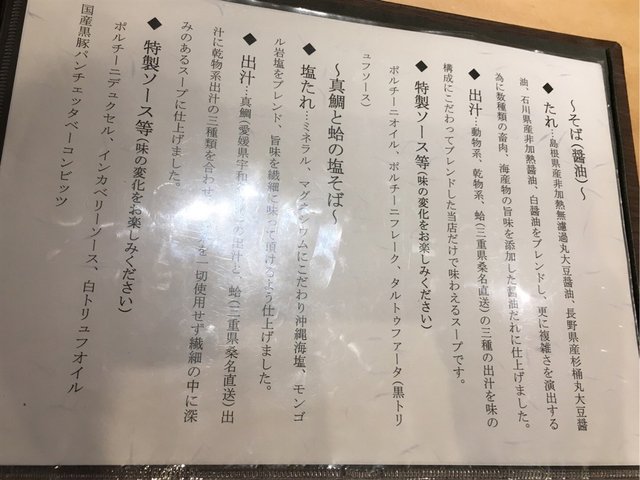 ～そば（醤油）～
◆ たれ…島根県産非加熱無濾過丸大豆醤油、長野県産杉桶丸大豆醤
油、石川県産非加熱醤油、白醤油をブレンドし、更に複雑さを演出する
為に数種類の畜肉、海産物の旨味を添加した醤油だれに仕上げました。
◆ 出汁…動物系、乾物系、蛤（三重県桑名直送）の三種の出汁を味の
構成にこだわってブレンドした当店だけで味わえるスープです。
◆ 特製ソース等（味の変化をお楽しみください）
ポルチーニオイル、ポルチーニフレーク、タルトゥファータ（黒トリ
ュフソース）
～真鯛と蛤の塩そば～
◆ 塩たれ…ミネラル、マグネシウムにこだわり沖縄海塩、モンゴ
ル岩塩をブレンド、旨味を繊細に味って頂けるよう仕上げました。
◆ 出汁…真鯛（愛媛県宇和 の出汁と、蛤（三重県桑名直送）出
汁に乾物系出汁の三種類を合わせ を一切使用せず繊細の中に深
みのあるスープに仕上げました。
◆ 特製ソース等（味の変化をお楽しみください）
ポルチーニデュクセル、インカベリーソース、白トリュフオイル
国産黒豚パンチェッタベーコンビッツ